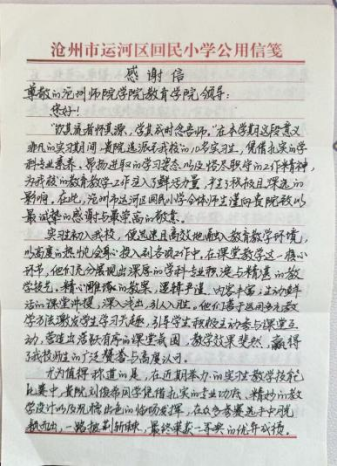 沧州市运河区回民小学公用信笺
感谢信
尊敬的沧州师范学院教育学院领导:
您好!
"饮其流者怀其源,学其成时念吾师。"在本学期这段意义
非凡的实习期间,贵院选派来我校的10名实习生,凭借扎实的学
科专业素养、昂扬进取的学习姿态以及恪尽职守的工作精神,
为我校的教育教学工作注入了鲜活力量,产生了积极且深远的
影响。在此,沧州市运河区回民小学全体师生谨向贵院致以
最诚挚的感谢与最崇高的敬意。
实习生初入我校,便迅速且高效地融入教育教学环境,
以高度的热忱全身心投入到各项工作中。在课堂教学这一核心
环节,他们充分展现出深厚的学科专业积淀与精湛的教
学技艺。精心雕琢的教案,逻辑严谨、内容丰富;生动鲜
活的课堂讲授,深入浅出、引人入胜。他们善于运用多元教
学方法激发学生学习兴趣,引导学生积极主动参与课堂互
动,营造出活跃有序的课堂氛围,教学效果斐然,赢得
了我校师生的广泛赞誉与高度认可。
尤为值得称道的是,在近期举办的实习生教学技能
比赛中,贵院刘俊希同学凭借扎实的专业功底、精妙的教
学设计以及现场出色的临场发挥,在众多参赛选手中脱
颖而出,一路披荆斩棘,最终荣获一等奖的优异成绩。